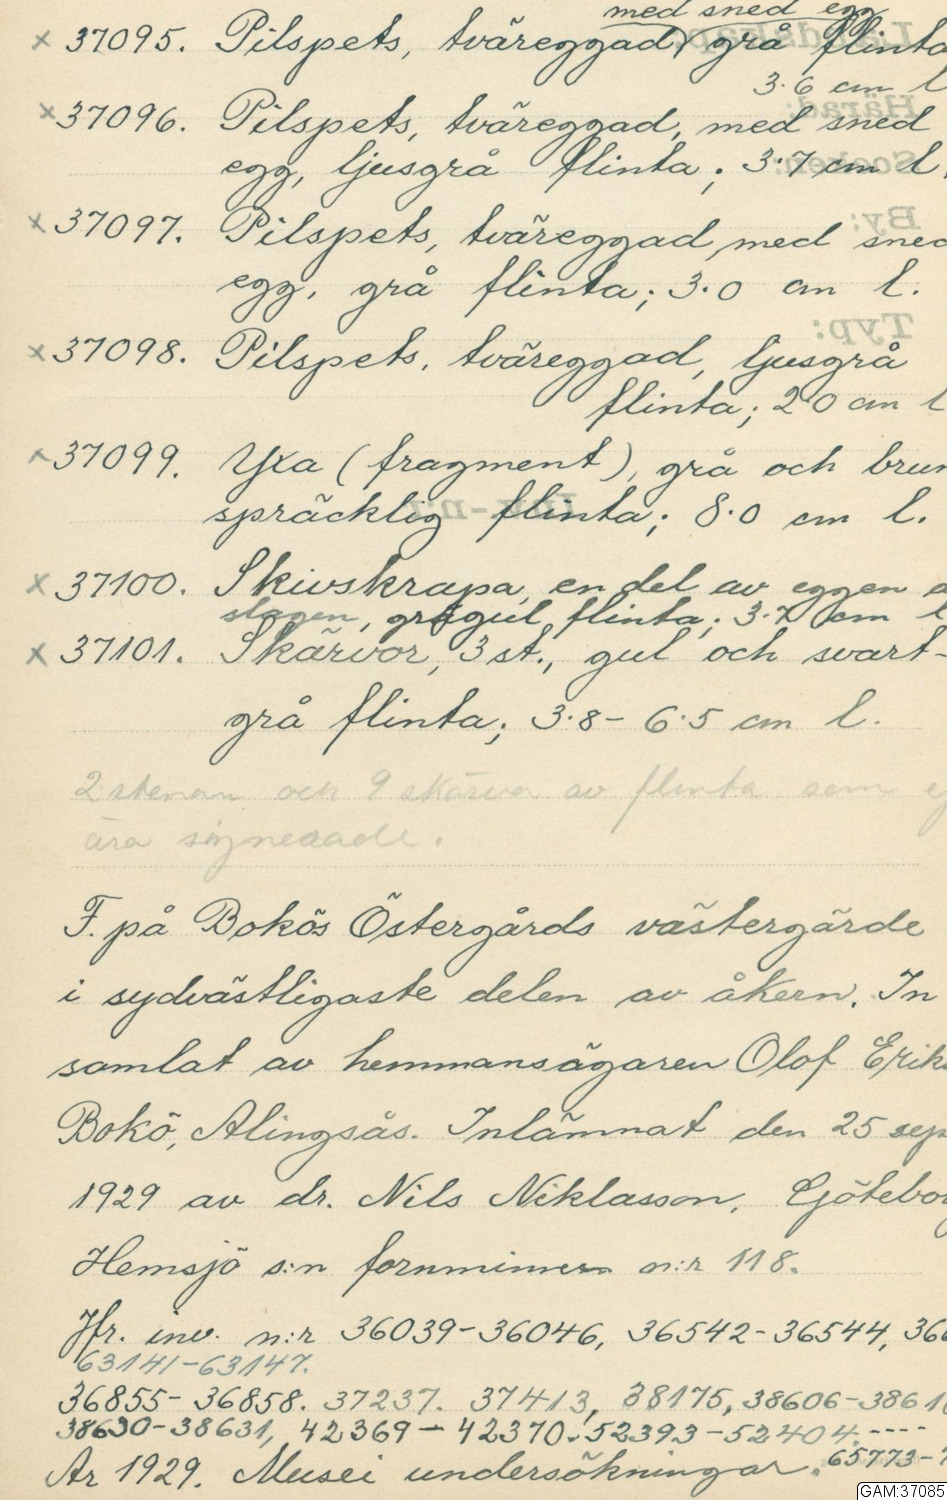 med sned egg
× 37095. Pilspets, tväreggad, grå flinta
3.6 cm l
× 37096. Pilspets, tväreggad, med sned
egg, ljusgrå flinta; 3.7 cm l.
× 37097. Pilspets, tväreggad, med sned
egg, grå flinta; 3.0 cm l.
× 37098. Pilspets, tväreggad, ljusgrå
flinta; 2.0 cm l
× 37099. Yxa (fragment), grå och brun
spräcklig flinta; 8.0 cm l.
× 37100. Skivskrapa, en del av eggen a
slagen, grågul flinta; 3.7 cm l
× 37101. Skärvor, 3 st., gul och svart-
grå flinta; 3.8 – 6.5 cm l.
2 stenar och 9 skärvor av flinta som ej
äro signerade.
F. på Bokös Östergårds västergärde
i sydvästligaste delen av åkern. In
samlat av hemmansägaren Olof Eriks
Bokö, Alingsås. Inlämnat den 25 sep
1929 av dr. Nils Niklasson, Göteborg
Hemsjö s:n fornminnen n:r 118.
Jfr. inv. n:r 36039-36046, 36542-36544, 366
63141-63147.
36855-36858. 37237. 37413, 38175, 38606-3861
38630-38631, 42369 – 42370. 52393-52404. ----
Ar 1929. Musei undersökningar. 65773-7
GAM:37085